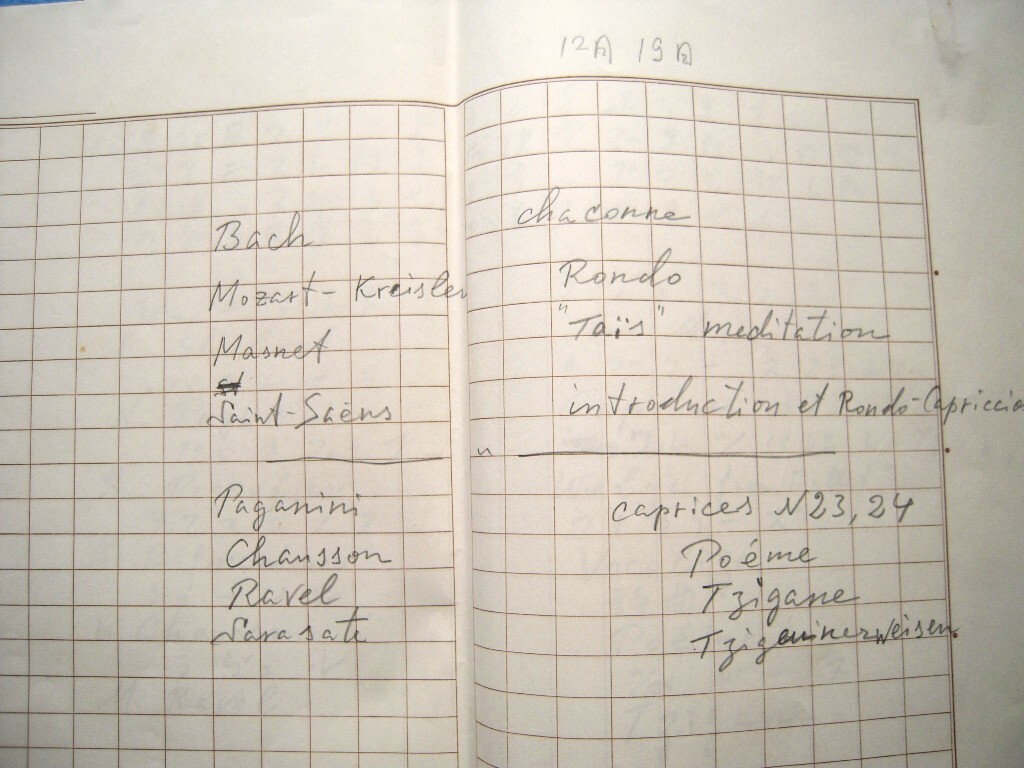 12月 19日
Bach chaconne
Mozart-Kreisler Rondo
Masnet "Taïs" meditation
Saint-Saëns introduction et Rondo-Capriccio
Paganini caprices N23, 24
Chausson Poéme
Ravel Tzigane
Sarasate Tzigeuinerweisen